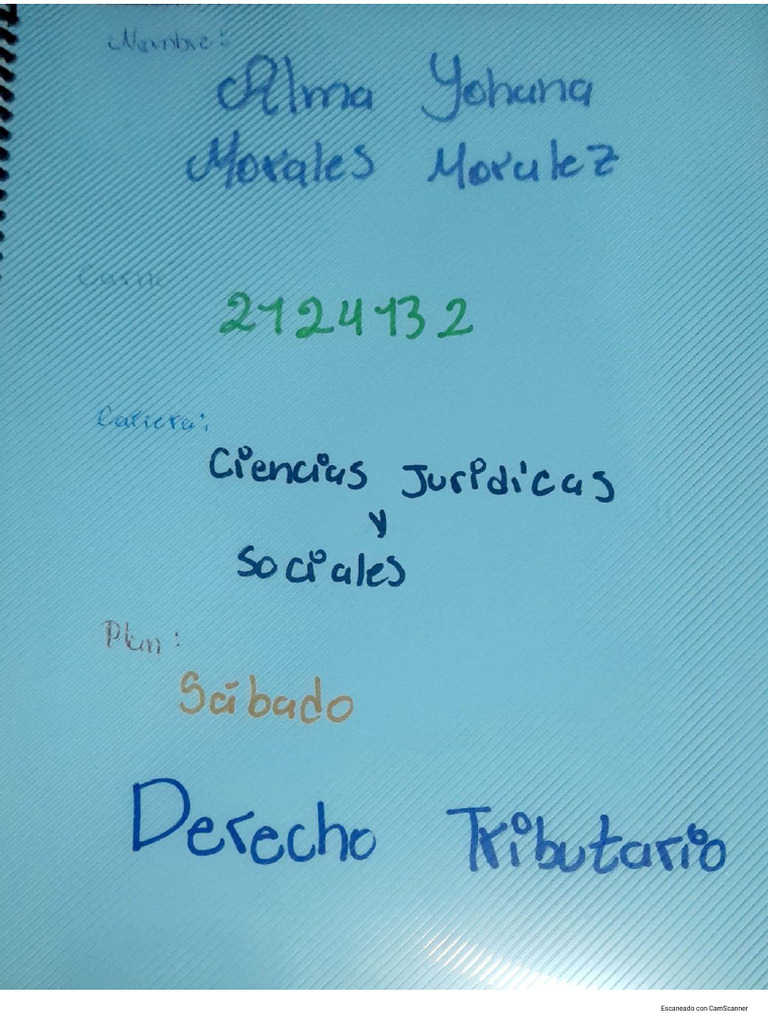 Nombre:
Alma Yohana
Morales Moralez
Carné
2124132
Carrera:
Ciencias Jurídicas
y
Sociales
Plan:
Sábado
Derecho Tributario
Escaneado con CamScanner